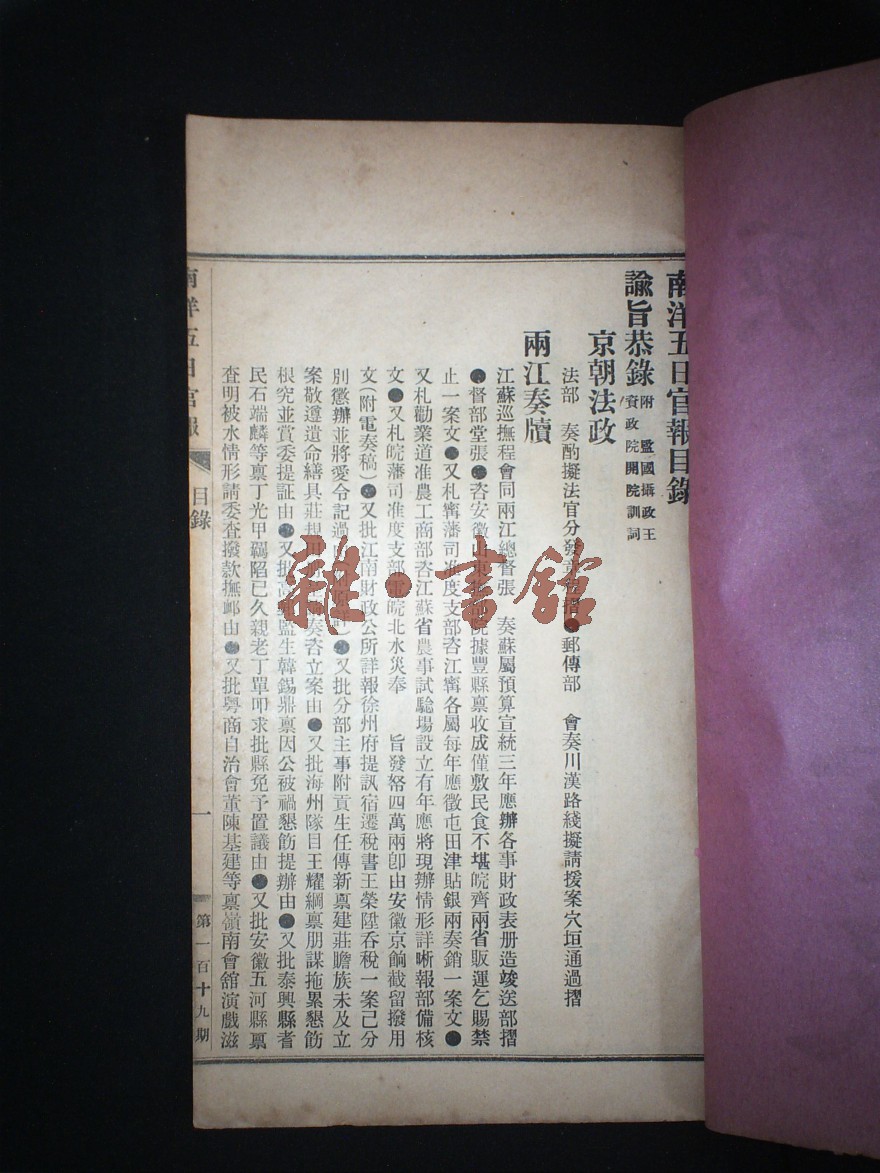 南洋五日官報目錄
諭旨恭錄 附 監國攝政王 資政院開院訓詞
京朝法政
法部 奏酌擬法官分發章程摺●郵傳部 會奏川漢路綫擬請援案穴垣通過摺
兩江奏牘
江蘇巡撫程會同兩江總督張 奏蘇屬預算宣統三年應辦各事財政表册造竣送部摺
●督部堂張●咨安徽山東 據豐縣禀收成僅敷民食不堪皖齊兩省販運乞賜禁
止一案文●又札寗藩司准度支部咨江寗各屬每年應徵屯田津貼銀兩奏銷一案文●
又札勸業道准農工商部咨江蘇省農事試驗場設立有年應將現辦情形詳晰報部備核
文●又札皖藩司准度支部電皖北水災奉 旨發帑四萬兩卽由安徽京餉截留撥用
文（附電奏稿）●又批江南財政公所詳報徐州府提訊宿遷稅書王榮陞呑稅一案己分
別懲辦並將愛令記過由 ●又批分部主事附貢生任傳新禀建莊贍族未及立
案敬遵遺命繕具莊規田 奏咨立案由●又批海州隊目王耀綱禀朋謀拖累懇飭
根究並賞委提証由●又批 監生韓錫鼎禀因公被禍懇飭提辦由●又批泰興縣耆
民石端麟等禀丁光甲羈陷已久親老丁單叩求批縣免予置議由●又批安徽五河縣禀
查明被水情形請委査撥款撫䘏由●又批粤商自治會董陳基建等禀嶺南會舘演戲滋
南洋五日官報
目錄
一
第一百十九期
雜·書舘